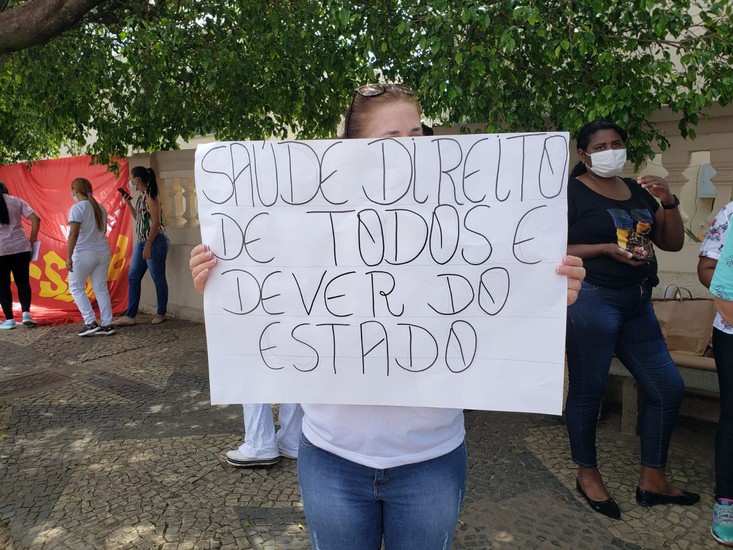 SAÚDE DIREITO
DE TODOS E
DEVER DO
ESTADO